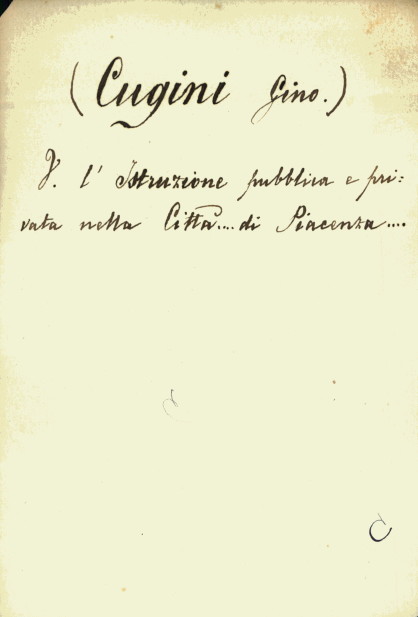 (Cugini Gino.)
V. l' Istruzione pubblica e pri:
vata nella Città.... di Piacenza....
C